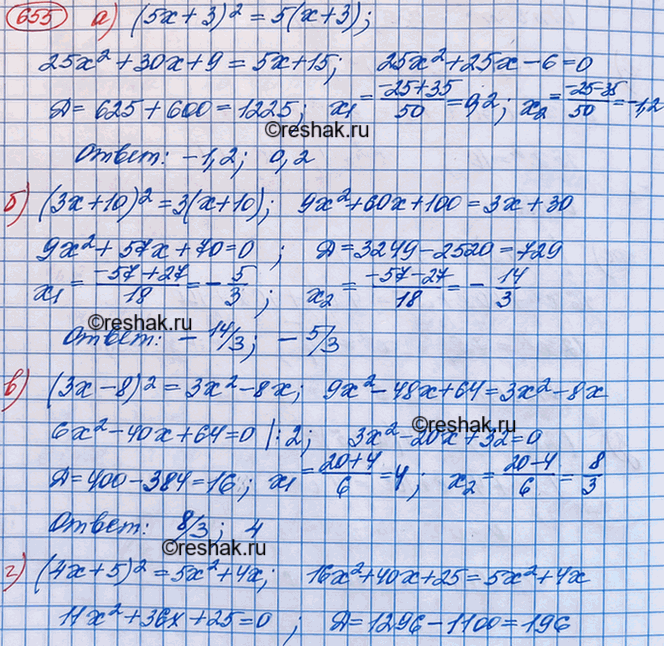 655 а) (5x+3)² = 5(x+3);
25x²+30x+9 = 5x+15; 25x²+25x-6=0
Д = 625+600=1225; x₁ = -25+35/50 = 0,2; x₂ = -25-35/50 = -1,2
©reshak.ru
Ответ: -1,2; 0,2
б) (3x+10)² = 3(x+10); 9x²+60x+100 = 3x+30
9x²+57x+70=0; Д=3249-2520=729
x₁ = -57+27/18 = -5/3; x₂ = -57-27/18 = -14/3
©reshak.ru
Ответ: -14/3; -5/3
в) (3x-8)² = 3x²-8x; 9x²-48x+64=3x²-8x
©reshak.ru
6x²-40x+64=0 |:2; 3x²-20x+32=0
Д=400-384=16; x₁ = 20+4/6 = 4; x₂ = 20-4/6 = 8/3
Ответ: 8/3; 4
©reshak.ru
г) (4x+5)² = 5x²+4x; 16x²+40x+25=5x²+4x
11x²+36x+25=0; Д=1296-1100=196
©reshak.ru